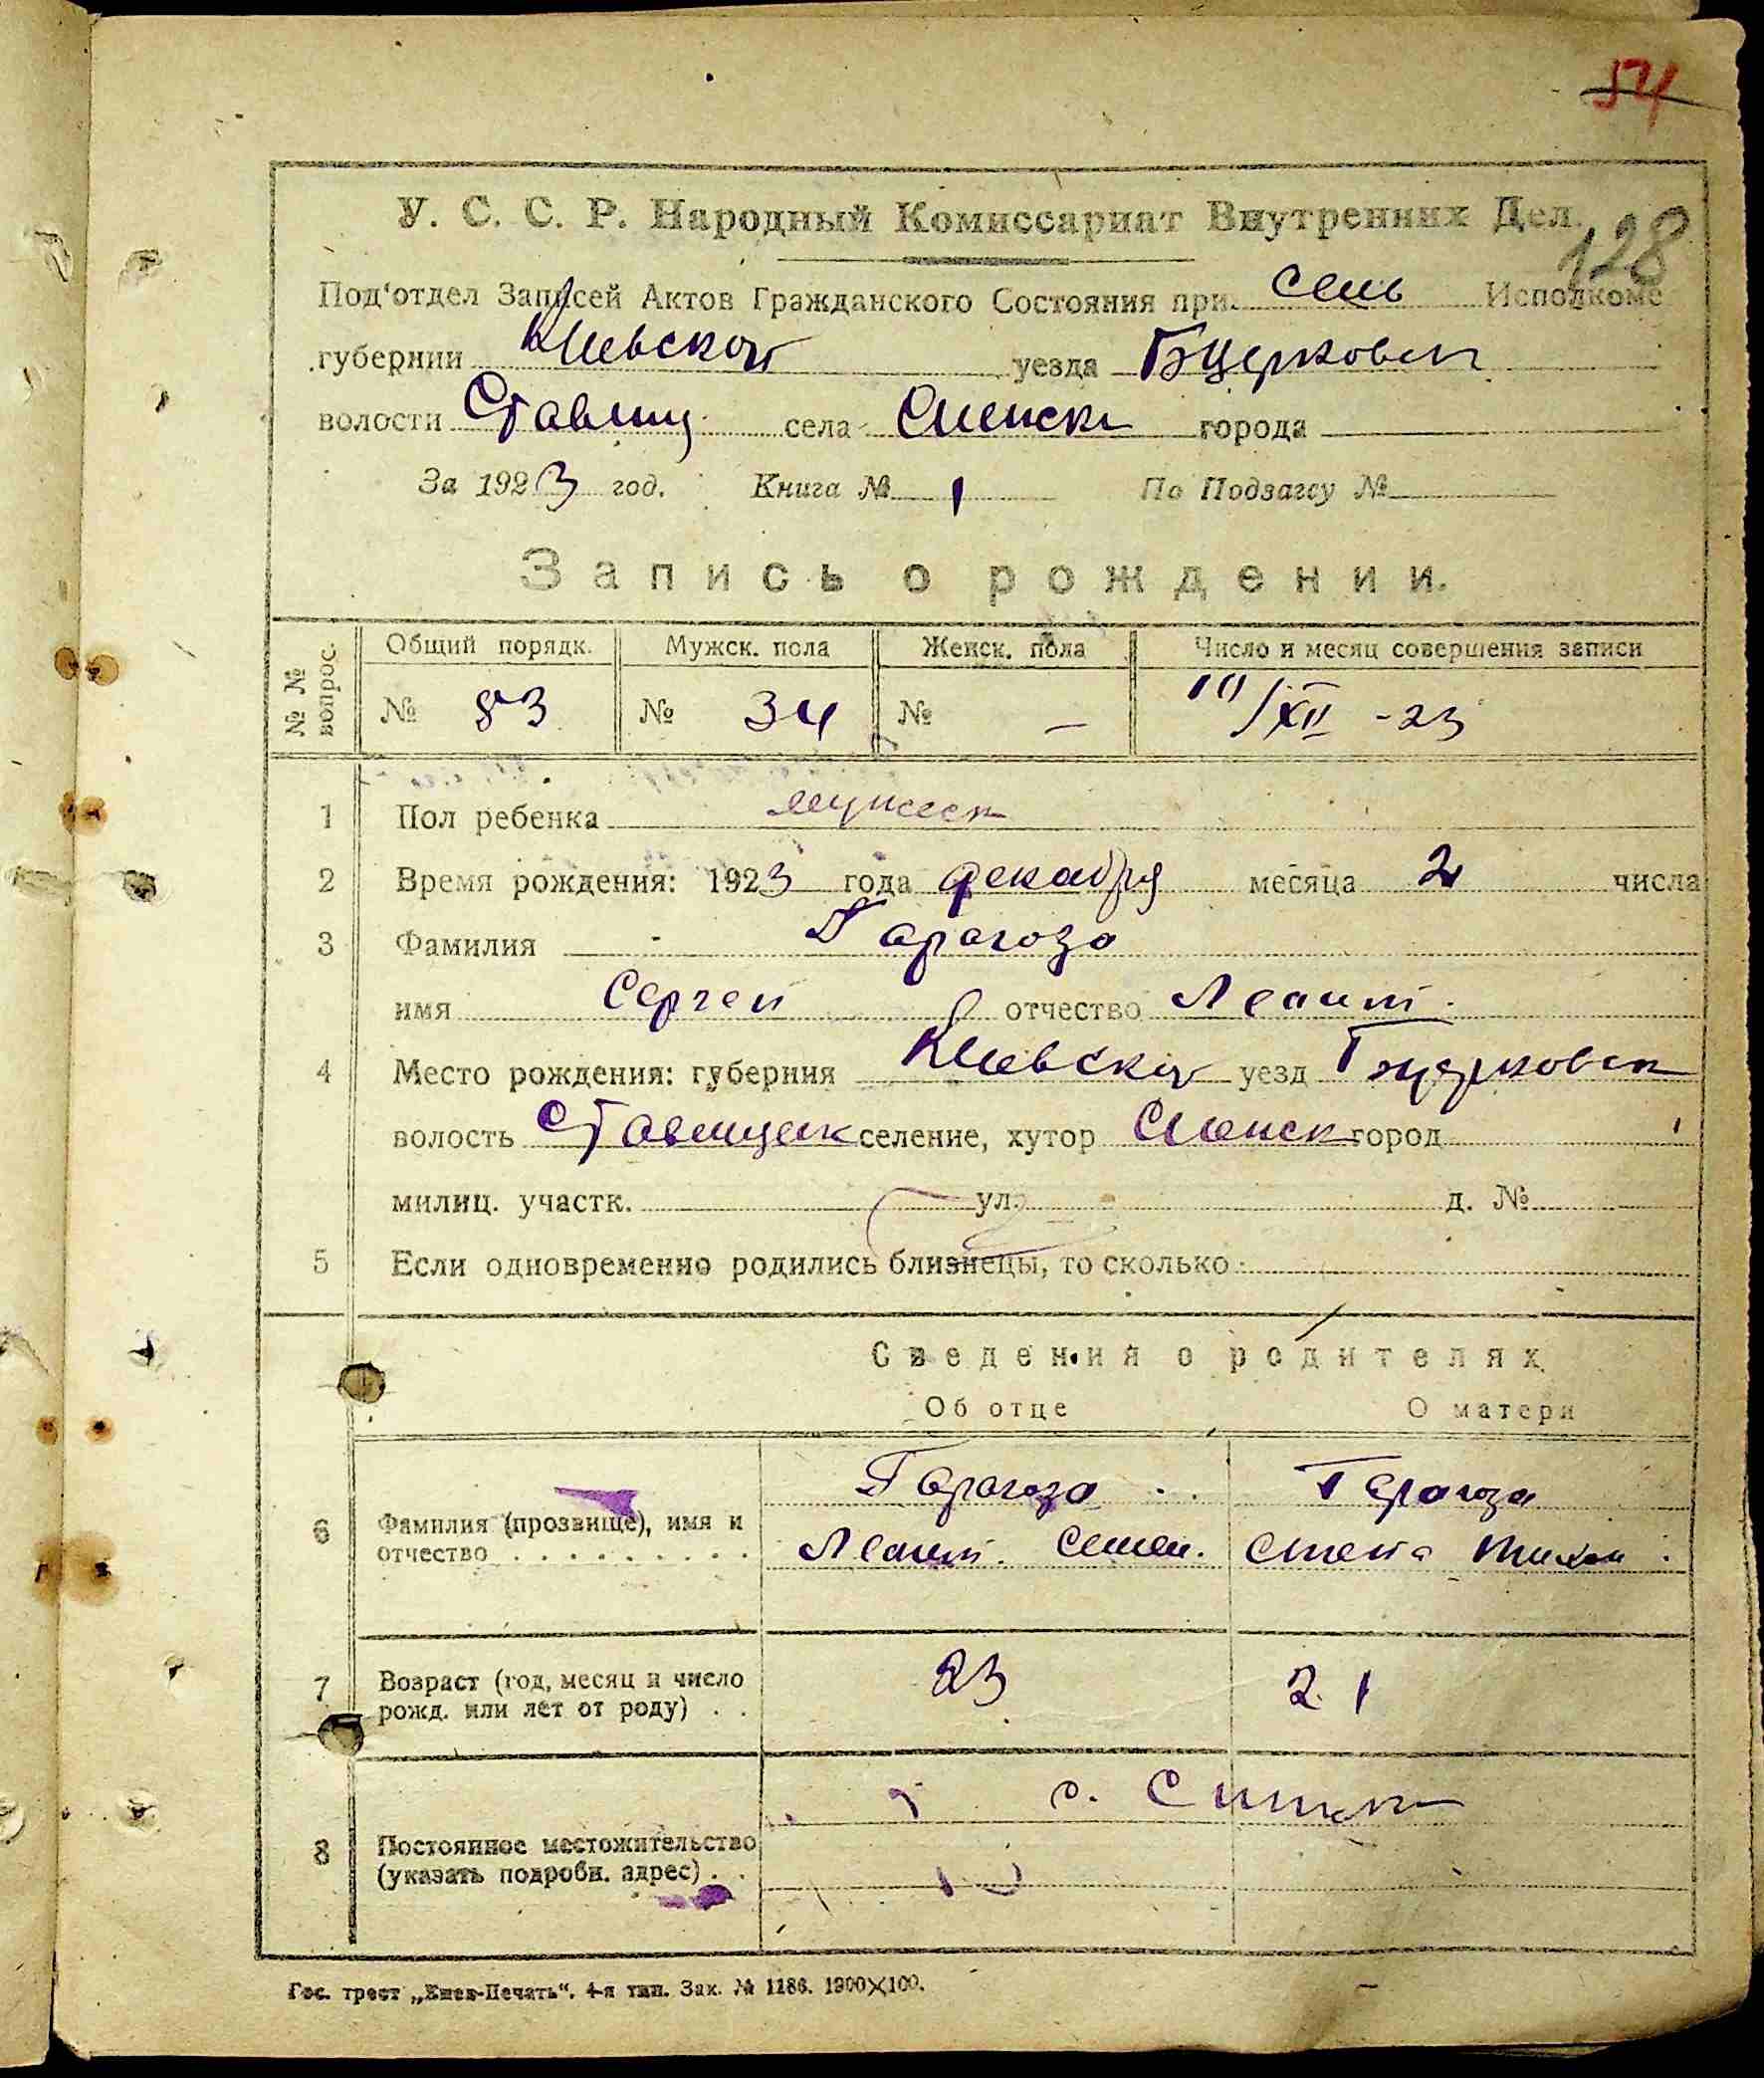 54
У. С. С. Р. Народный Комиссариат Внутренних Дел.
128
Под'отдел Записей Актов Гражданского Состояния при Сель Исполкоме
губернии Киевской уезда Бцерковск
волости Ставищ села города
За 1923 год. Книга № 1 По Подзагсу №
Запись о рождении.
№ № вопрос. Общий порядк. Мужск. пола Женск. пола Число и месяц совершения записи
№ 83 № 34 № — 10/XII -23
1 Пол ребенка мужеск
2 Время рождения: 1923 года декабря месяца 2 числа
3 Фамилия Гарагоза
имя Сергей отчество Леонт.
4 Место рождения: губерния Киевская уезд Бцерковск
волость Ставищек селение, хутор город
милиц. участк. ул. д. №
5 Если одновременно родились близнецы, то сколько
Сведения о родителях
Об отце О матери
6 Фамилия (прозвище), имя и Гарагоза Гарагоза
отчество . . . . . . . . . . Леонт. Семен. Тихон.
7 Возраст (год, месяц и число 23 21
рожд. или лет от роду) . .
с.
8 Постоянное местожительство
(указать подробн. адрес) . .
Гос. трест „Киев-Печать“. 4-я тип. Зак. № 1186. 1900×100.